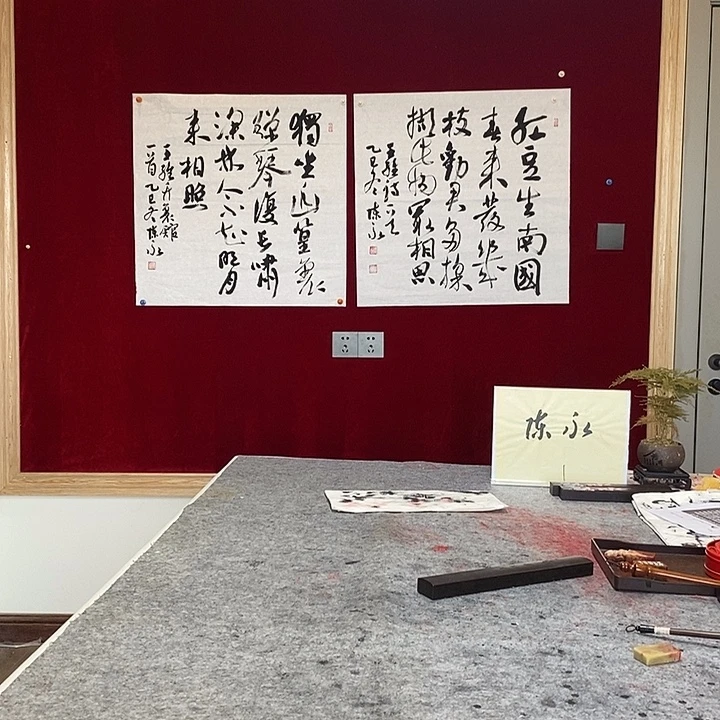 红豆生南國
春来發幾
枝勸君多採
擷此物最相思
王維詩一首
乙巳冬陈永
獨坐幽篁裏
彈琴復长嘯
深林人不知明月
来相照
王維竹裏館
一首乙巳冬陈永
陈永